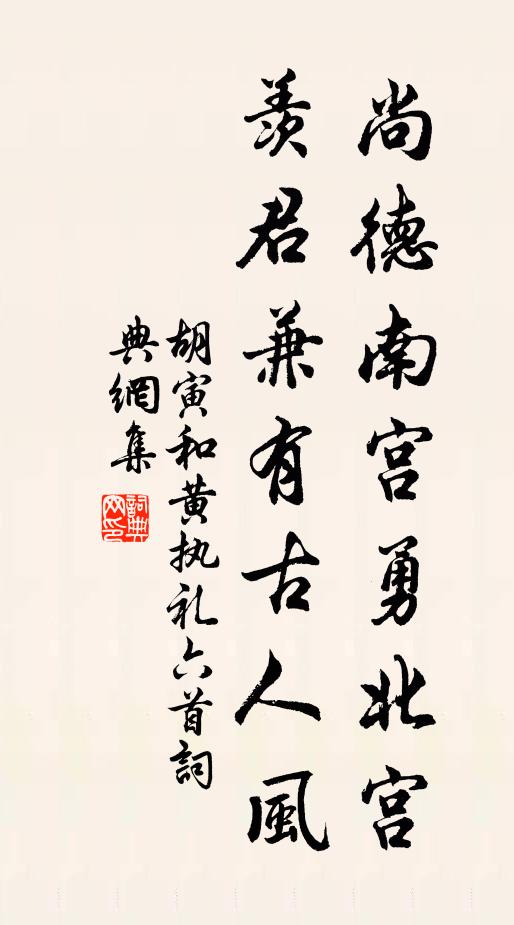 尚德南宫勇北宫
羡君兼有古人風
胡寅和黄执礼六首詞
典網集
詞典
网印